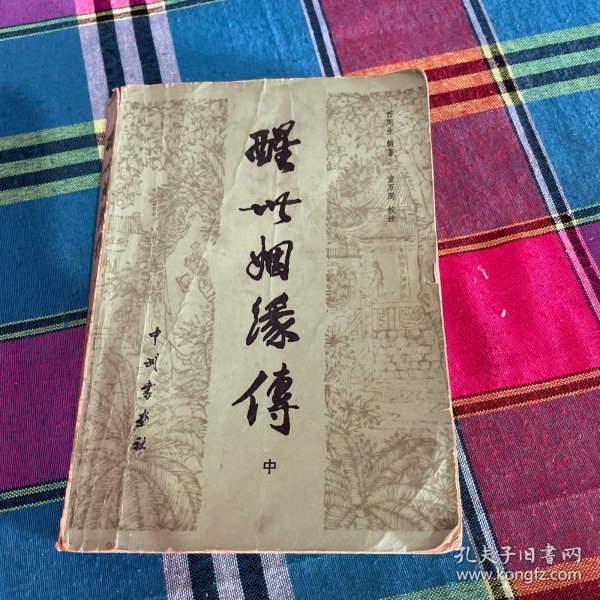 醒世姻緣傳
中
西周生 辑著 童万周 校注
中州書画社
孔夫子旧書网
www.kongfz.com